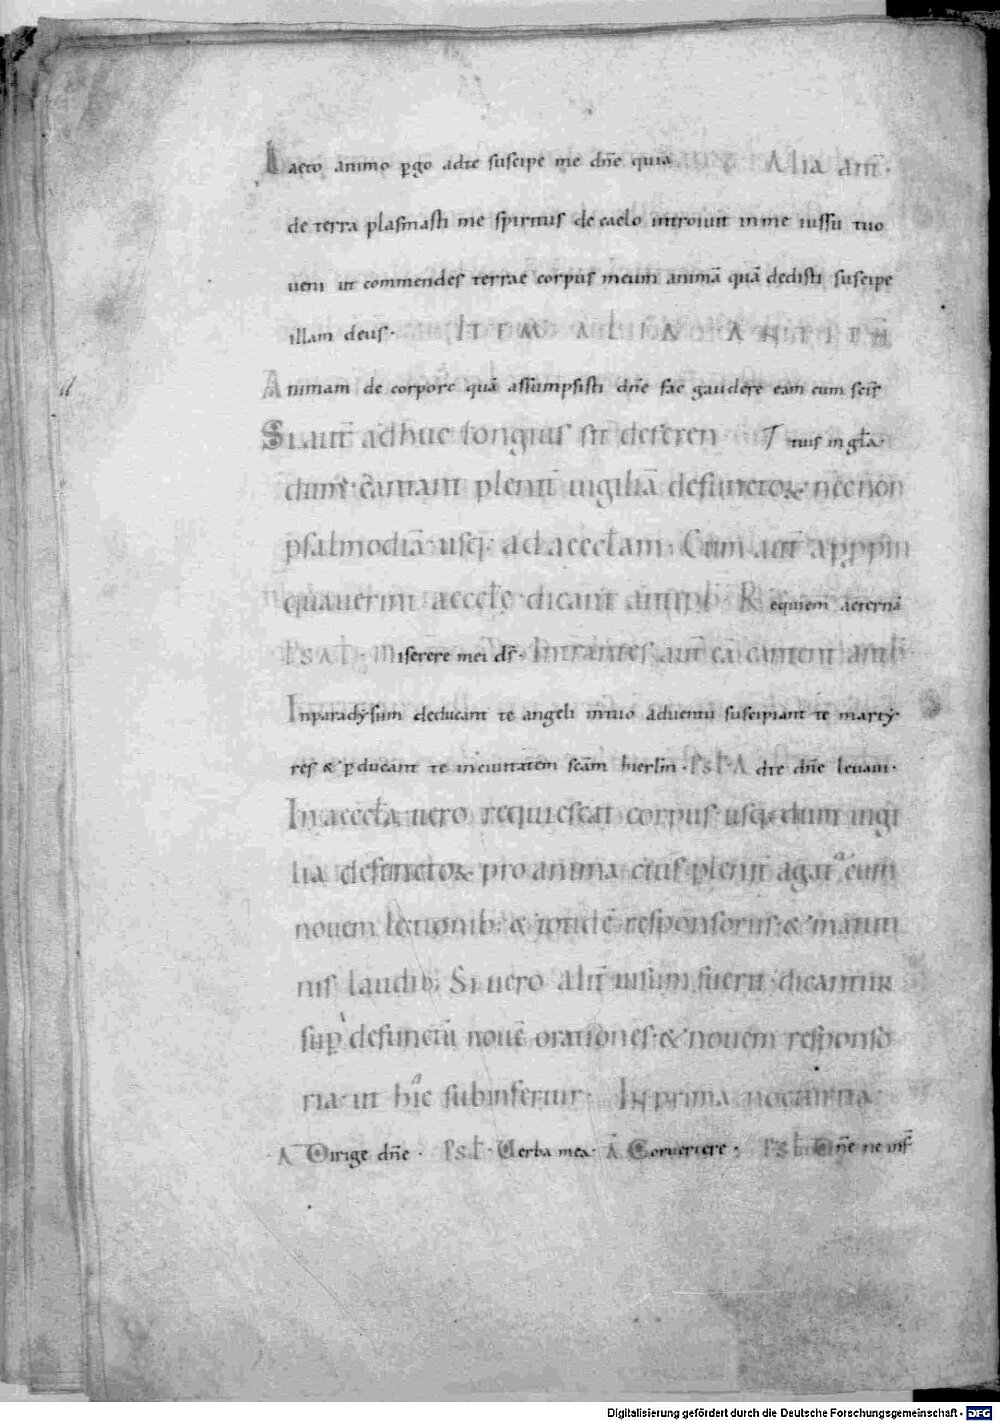 Laeto animo ꝑgo adte suscipe me dn̄e quia Alia an̄t·
de terra plasmasti me spiritus de caelo introiuit inme iussu tuo
ueni ut commendes terrae corpus meum animā quā dedisti suscipe
illam deus· ITEM ALIA ANTIPH̄
Animam de corpore quā assumpsisti dn̄e fac gaudere eam cum sc̄is
Si aut̄ adhuc longius sit deferen tuis in gl̄a·
dum· cantant plenit̄ uigiliā defunctoꝝ necnon
psalmodiā usq; ad aeccl̄am· Cum aut̄ appῥin
quauerint aeccl̄ę dicant Requiem aeternā
PSAL· Miserere mei ds̄· Intrantes aut̄ eā cantent
Inparadysum deducant te angeli intuo aduentu suscipiant te marty
res & ꝑducant te inciuitatem sc̄am hierl̄m· PSL· Adte dn̄e leuaui·
In aeccl̄a uero requiescat corpus usq; dum uigi
lia defunctoꝝ pro anima eius plenit̄ agat̄ cum
nouem lectionib; & totidē responsoriis & matuti
nis laudib; Si uero alit̄ uisum fuerit dicantur
sup̄ defunctū nouē orationes & nouem responso
ria ut hic subinfertur· In prima nocturna·
A Dirige dn̄e· PSL· Uerba mea· A Conuertere· PSL Dn̄e ne inf̄
Digitalisierung gefördert durch die Deutsche Forschungsgemeinschaft - DFG